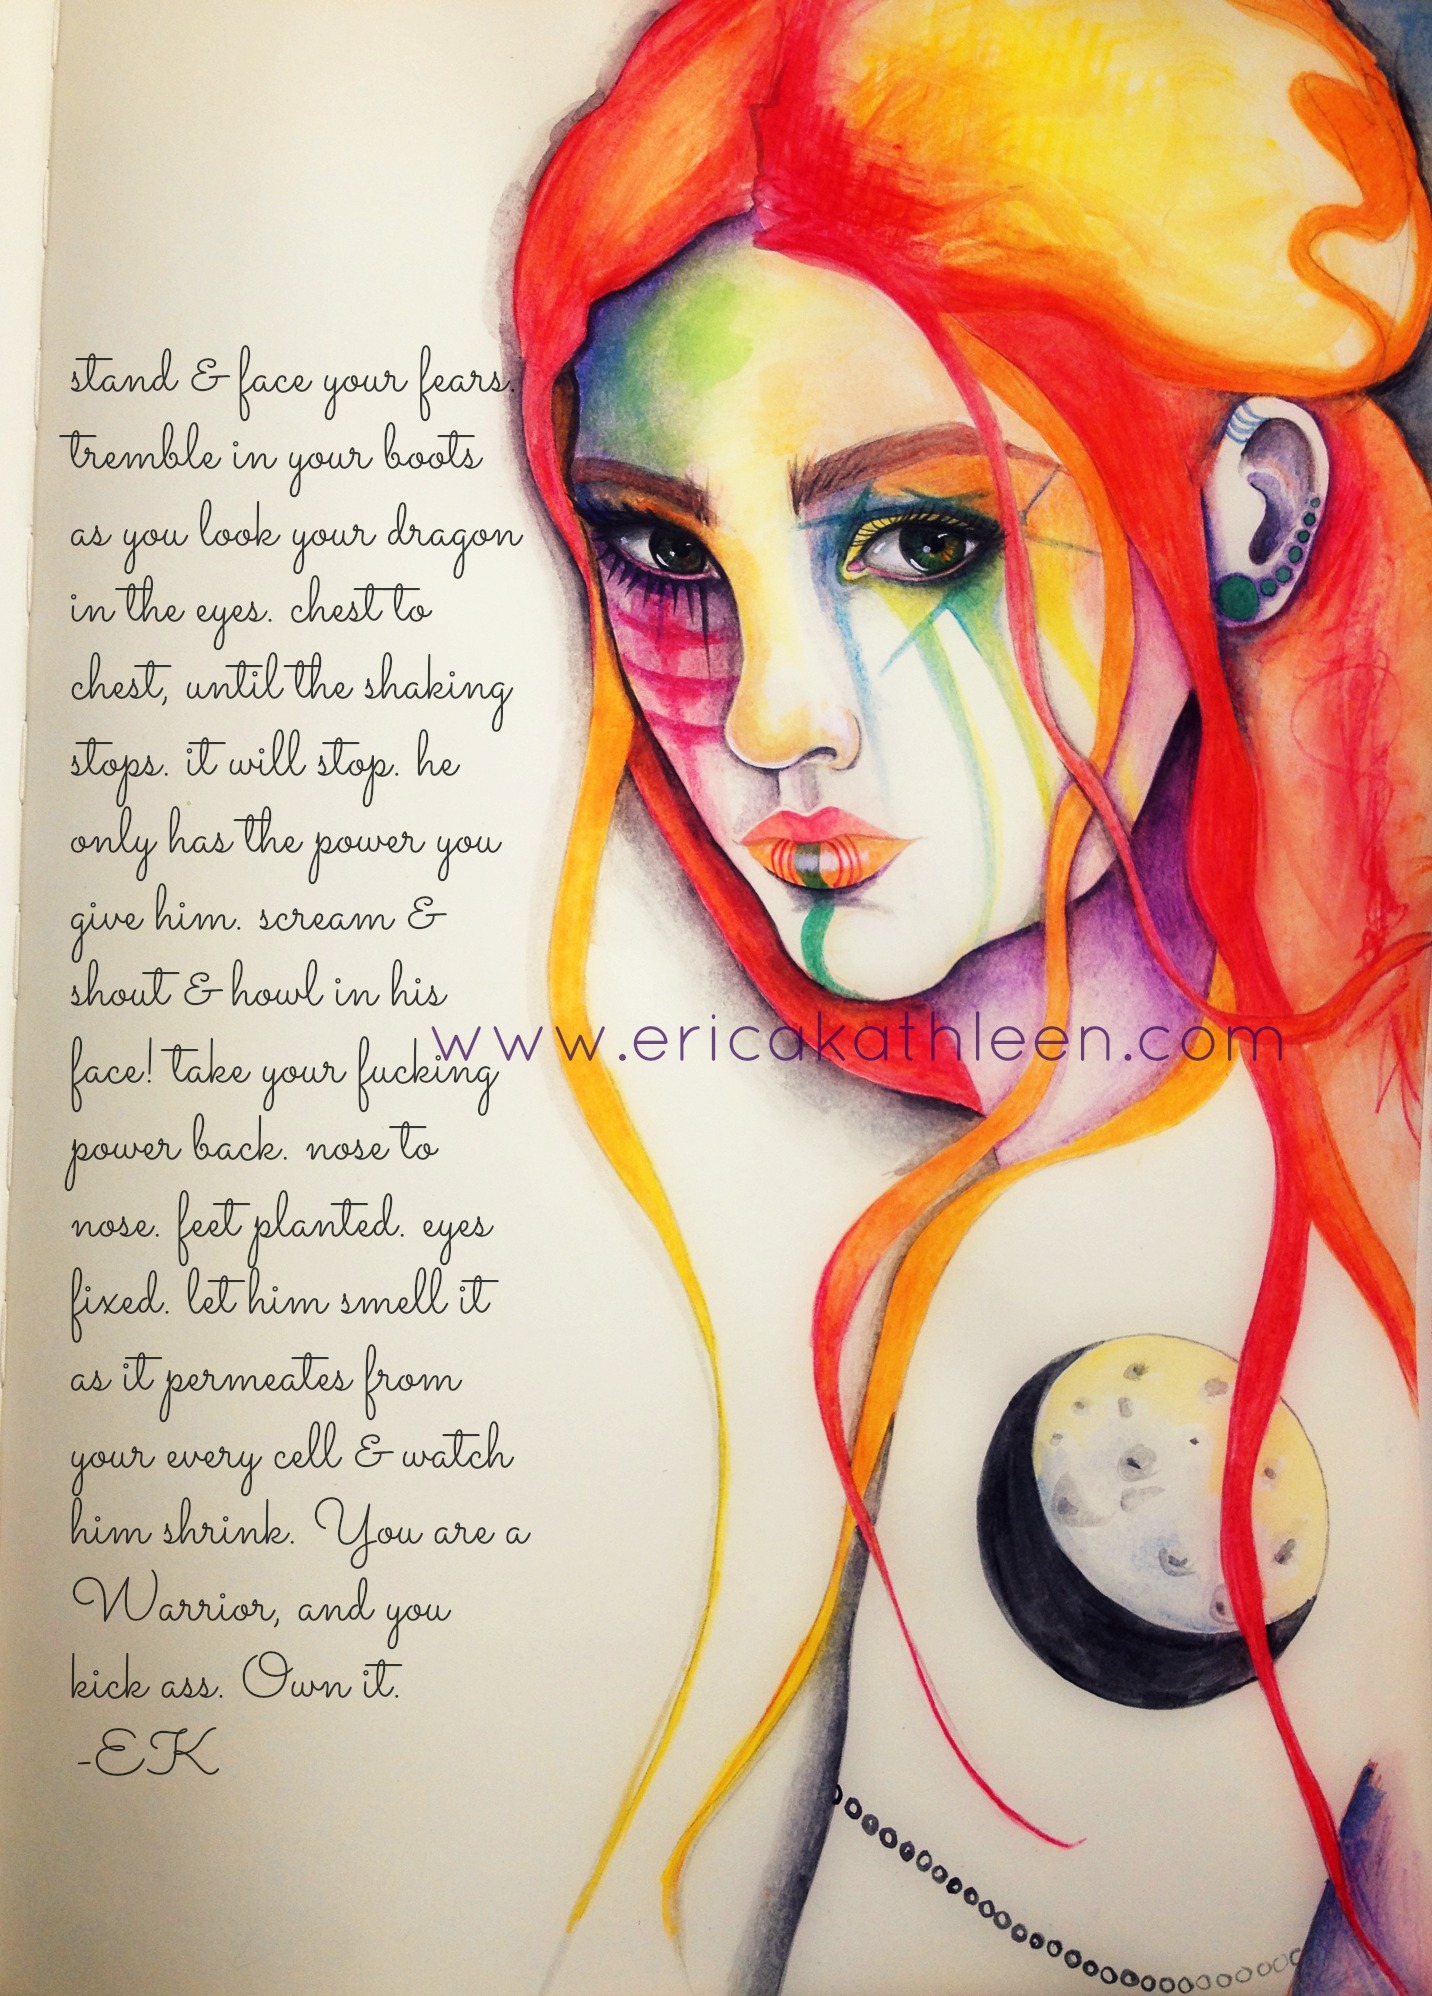 stand & face your fears.
tremble in your boots
as you look your dragon
in the eyes. chest to
chest, until the shaking
stops. it will stop. he
only has the power you
give him. scream &
shout & howl in his
face! take your fucking
power back. nose to
nose. feet planted. eyes
fixed. let him smell it
as it permeates from
your every cell & watch
him shrink. You are a
Warrior, and you
kick ass. Own it.
-EK
www.ericakathleen.com